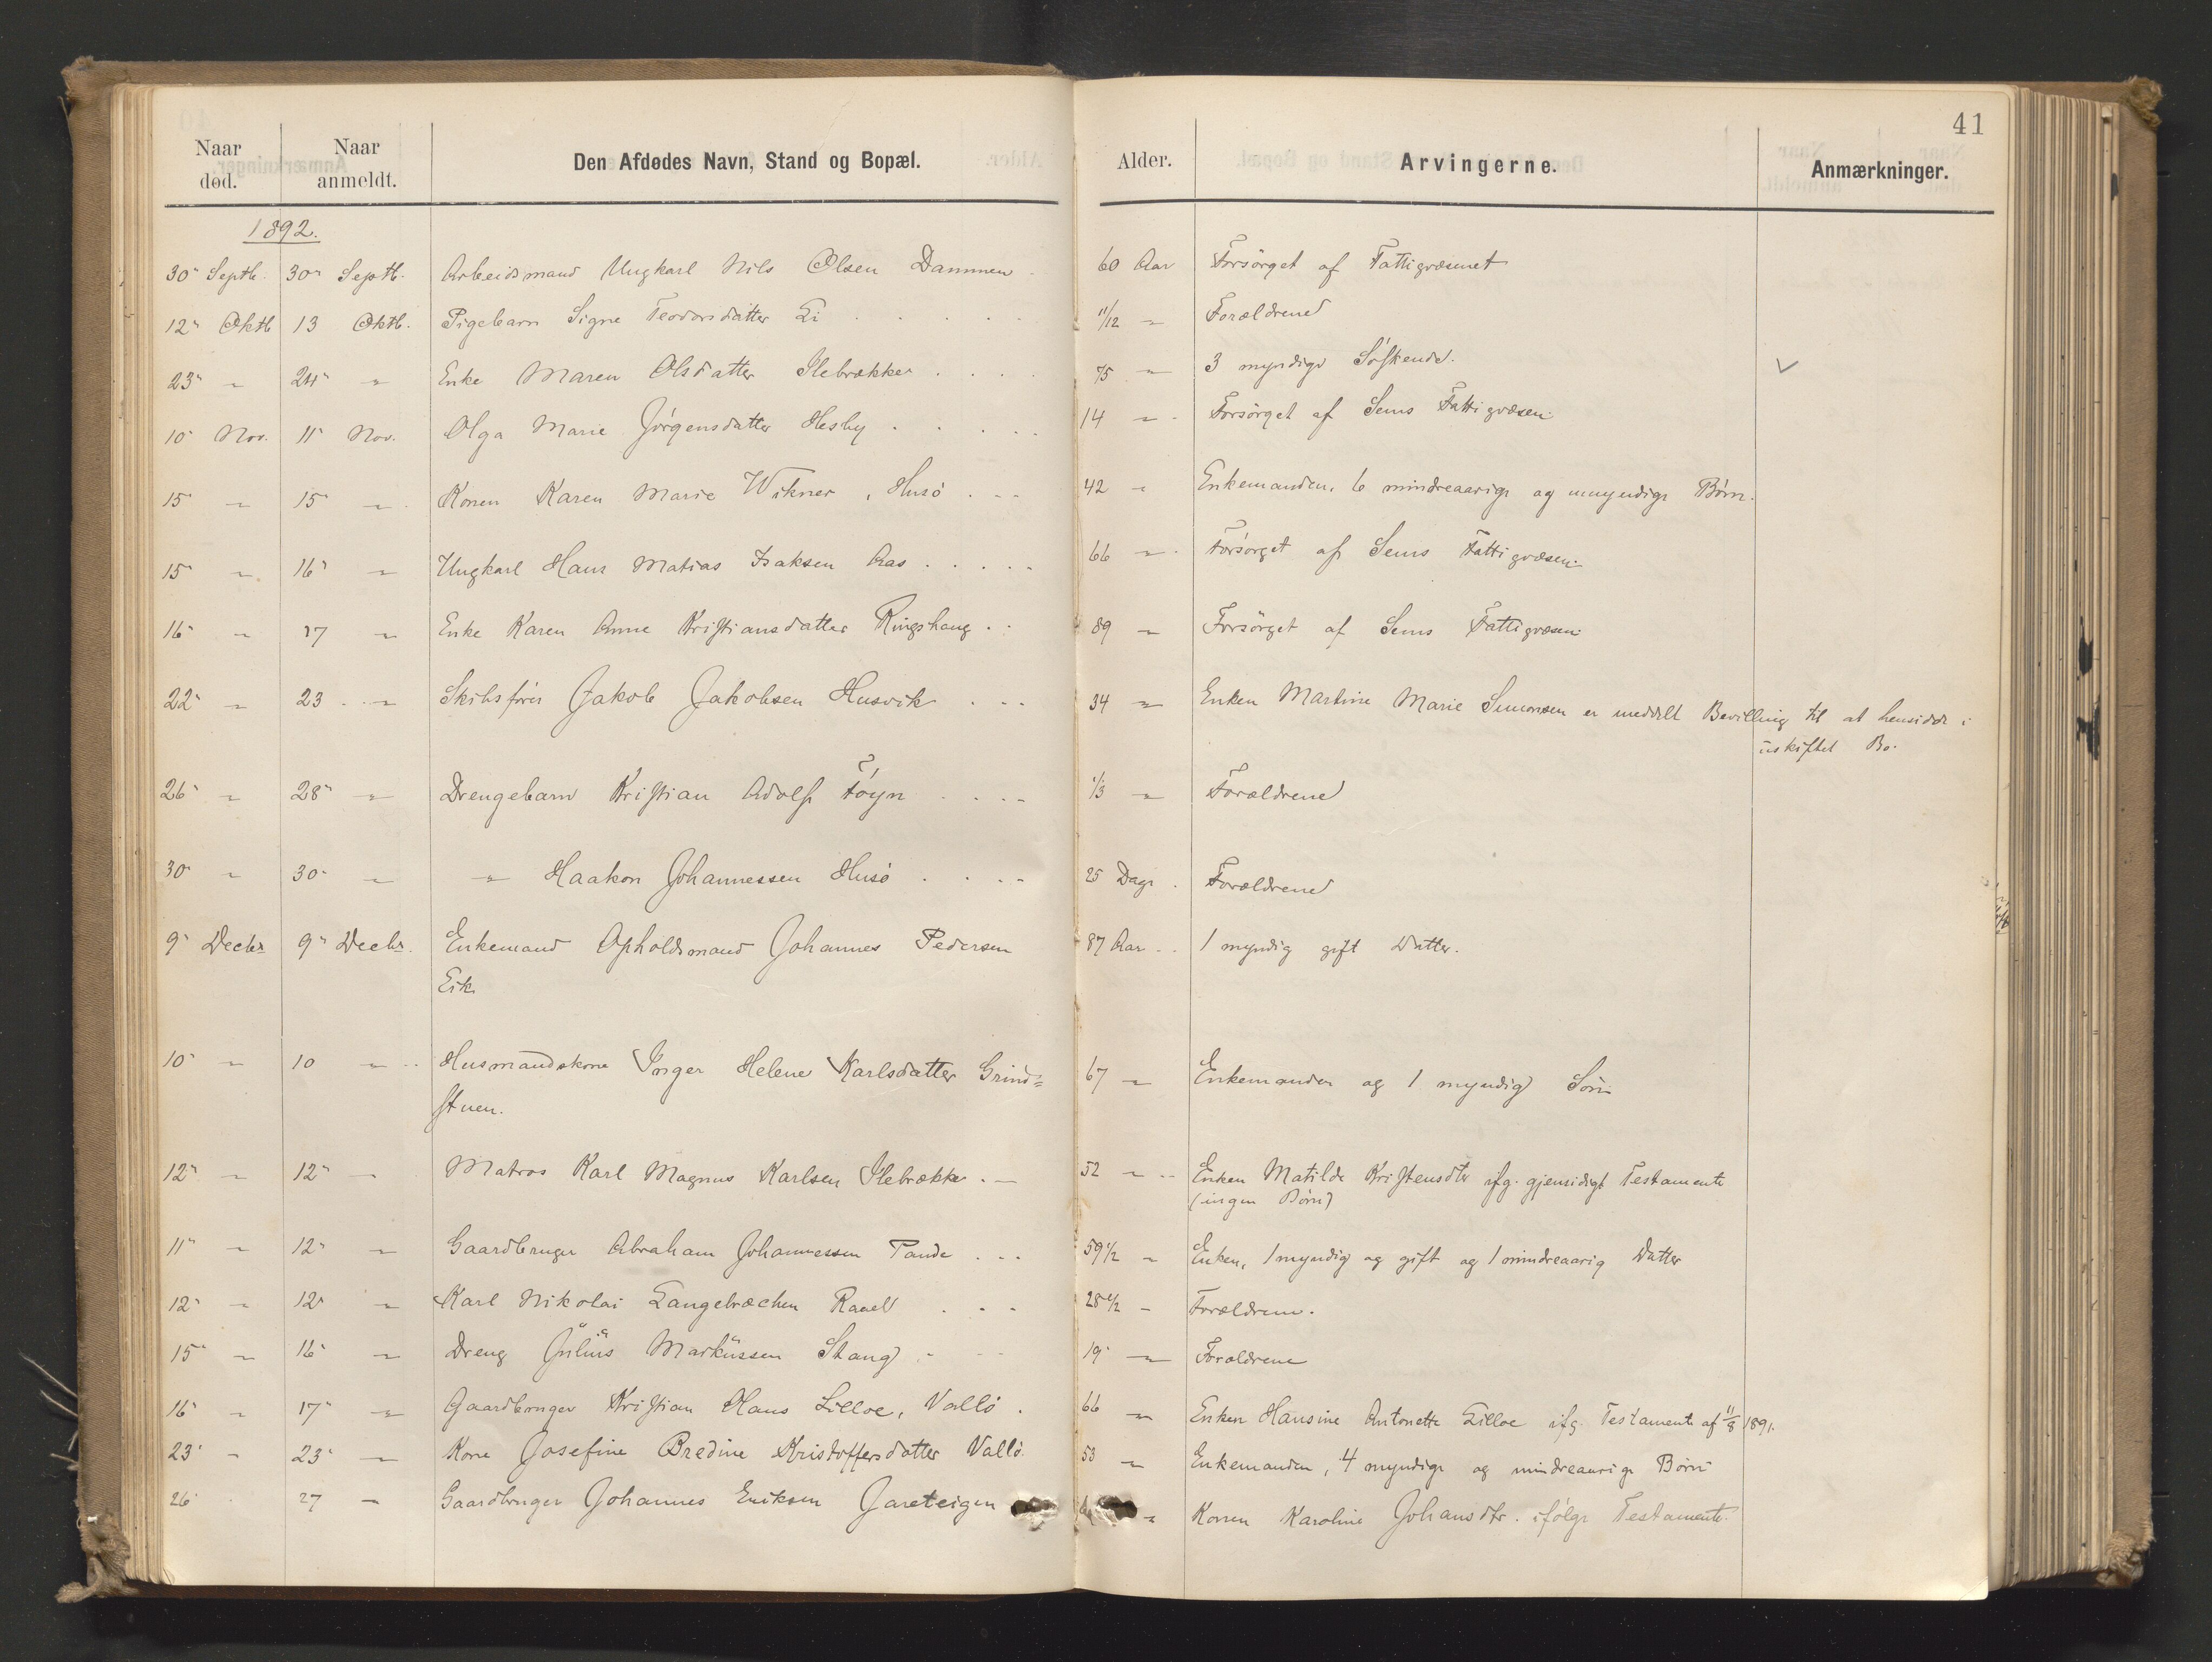 41
Naar død. Naar anmeldt. Den Afdødes Navn, Stand og Bopæl. Alder. Arvingerne. Anmærkninger.
1892.
30" Septb. 30" Septb. Arbeidsmand Ungkarl Nils Olsen Dammen 60 Aar Forsörget af Fattigvæsenet
12" Oktb 13 Oktb. Pigebarn Signe Teodorsdatter Ei . . . . . 11/12 " Forældrene
23" " 24" " Enke Maren Olsdatter Ilebrække . . . . 75 " 3 myndige Søskende. ✓
10 Nov. 11" Nov. Olga Marie Jörgensdatter Hesby . . . . . 14 " Forsörget af Sems Fattigvæsen.
15" " 15" " Konen Karen Marie Wikner, Husö . - - 42 " Enkemanden, 6 mindreaarige og umyndige Børn.
15" " 16" " Ungkarl Hans Matias Isaksen Aas . . . . . 66 " Forsörget af Sems Fattigvæsen.
16" " 17 " Enke Karen Anne Kristiansdatter Ringshaug . . 89 " Forsörget af Sems Fattigvæsen
22" " 23 " Skibsförer Jakob Jakobsen Husvik . . . 34 " Enken Martine Marie Simonsen er meddelt Bevilling til at hensidde i
uskiftet Bo.
26" " 28" " Drengebarn Kristian Adolf Föyn . . . . 1/3 " Forældrene
30" " 30" " " Haakon Johannessen Husö . . . . 25 Dage . Forældrene
9" Decbr 9" Decbr. Enkemand Opholdsmand Johannes Pedersen 87 Aar . . 1 myndig gift Datter.
Eik
10" " 10 " Husmandskone Inger Helene Karlsdatter Grind= 67 " Enkemanden og 1 myndig Sön
stuen.
12" " 12" " Matros Karl Magnus Karlsen Ilebrække . - 52 " Enken Matilde Kristensdtr ifg. gjensidigt Testamente
(ingen Børn)
11" " 12" " Gaardbruger Abraham Johannessen Tande . . . 59 1/2 " Enken, 1 myndig og gift og 1 mindreaarig Datter
12" " 12" " Karl Nikolai Langebræchen Rauel . . . 28 1/2 " Forældrene.
15" " 16" " Dreng Julius Markussen Stang . - - 19 " Forældrene
16" " 17" " Gaardbruger Kristian Hans Lilloe, Vallö . 66 " Enken Hansine Antonette Lilloe ifg. Testamente af 11/8 1891.
23" " 23" " Kone Josefine Bredine Kristoffersdatter Vallö. 53 " Enkemanden, 4 myndige og mindreaarige Børn
26" 27 " Gaardbruger Johannes Eriksen Jareteigen " Konen Karoline Johansdtr. ifølge Testamente.